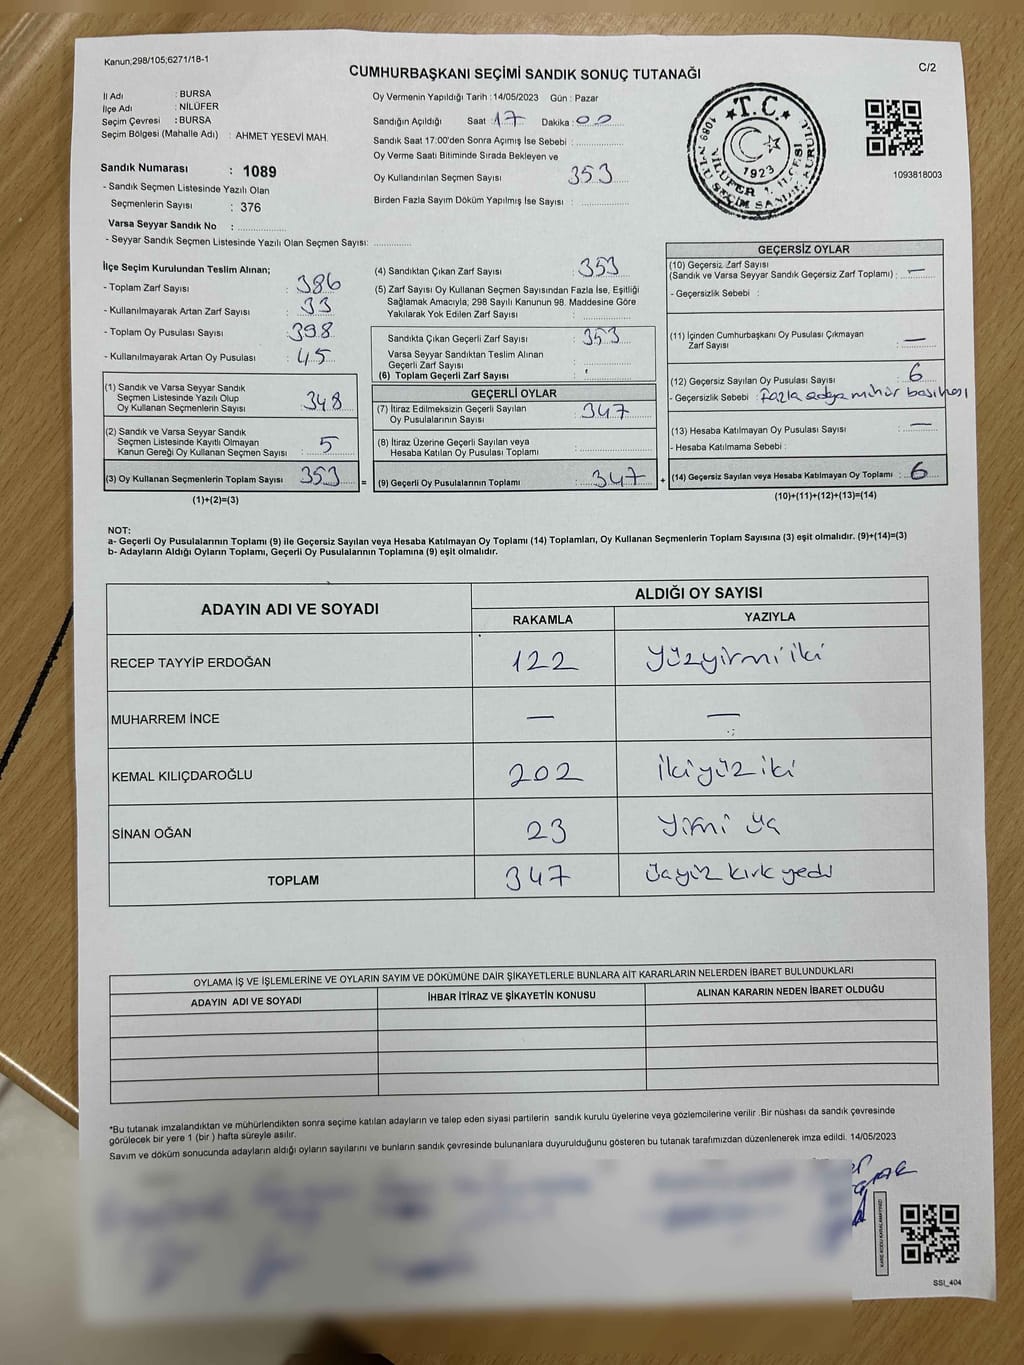 Kanun;298/105;6271/18-1
C/2
CUMHURBAŞKANI SEÇİMİ SANDIK SONUÇ TUTANAĞI
İl Adı : BURSA
İlçe Adı : NİLÜFER
Seçim Çevresi : BURSA
Seçim Bölgesi (Mahalle Adı) : AHMET YESEVİ MAH.
Sandık Numarası : 1089
- Sandık Seçmen Listesinde Yazılı Olan
Seçmenlerin Sayısı : 376
Varsa Seyyar Sandık No :
- Seyyar Sandık Seçmen Listesinde Yazılı Olan Seçmen Sayısı:
Oy Vermenin Yapıldığı Tarih : 14/05/2023 Gün : Pazar
Sandığın Açıldığı Saat : 17 Dakika : 00
Sandık Saat 17:00'den Sonra Açımış İse Sebebi :
Oy Verme Saati Bitiminde Sırada Bekleyen ve
Oy Kullandırılan Seçmen Sayısı 353
Birden Fazla Sayım Döküm Yapılmış İse Sayısı :
T.C.
1923
1089 NOLU SEÇİM SANDIK KURULU
NİLÜFER 1. İLÇESİ
1093818003
İlçe Seçim Kurulundan Teslim Alınan;
- Toplam Zarf Sayısı : 386
- Kullanılmayarak Artan Zarf Sayısı : 33
- Toplam Oy Pusulası Sayısı : 398
- Kullanılmayarak Artan Oy Pusulası : 45
(1) Sandık ve Varsa Seyyar Sandık
Seçmen Listesinde Yazılı Olup
Oy Kullanan Seçmenlerin Sayısı : 348
(2) Sandık ve Varsa Seyyar Sandık
Seçmen Listesinde Kayıtlı Olmayan
Kanun Gereği Oy Kullanan Seçmen Sayısı : 5
(3) Oy Kullanan Seçmenlerin Toplam Sayısı : 353 =
(1)+(2)=(3)
(4) Sandıktan Çıkan Zarf Sayısı : 353
(5) Zarf Sayısı Oy Kullanan Seçmen Sayısından Fazla İse, Eşitliği
Sağlamak Amacıyla; 298 Sayılı Kanunun 98. Maddesine Göre
Yakılarak Yok Edilen Zarf Sayısı :
Sandıkta Çıkan Geçerli Zarf Sayısı : 353
Varsa Seyyar Sandıktan Teslim Alınan
Geçerli Zarf Sayısı :
(6) Toplam Geçerli Zarf Sayısı :
GEÇERLİ OYLAR
(7) İtiraz Edilmeksizin Geçerli Sayılan
Oy Pusulalarının Sayısı : 347
(8) İtiraz Üzerine Geçerli Sayılan veya
Hesaba Katılan Oy Pusulası Toplamı :
(9) Geçerli Oy Pusulalarının Toplamı : 347 +
GEÇERSİZ OYLAR
(10) Geçersiz Zarf Sayısı
(Sandık ve Varsa Seyyar Sandık Geçersiz Zarf Toplamı) : —
- Geçersizlik Sebebi :
(11) İçinden Cumhurbaşkanı Oy Pusulası Çıkmayan
Zarf Sayısı : —
(12) Geçersiz Sayılan Oy Pusulası Sayısı : 6
- Geçersizlik Sebebi : fazla mühür
(13) Hesaba Katılmayan Oy Pusulası Sayısı : —
- Hesaba Katılmama Sebebi :
(14) Geçersiz Sayılan veya Hesaba Katılmayan Oy Toplamı : 6
(10)+(11)+(12)+(13)=(14)
NOT:
a- Geçerli Oy Pusulalarının Toplamı (9) ile Geçersiz Sayılan veya Hesaba Katılmayan Oy Toplamı (14) Toplamları, Oy Kullanan Seçmenlerin Toplam Sayısına (3) eşit olmalıdır. (9)+(14)=(3)
b- Adayların Aldığı Oyların Toplamı, Geçerli Oy Pusulalarının Toplamına (9) eşit olmalıdır.
ADAYIN ADI VE SOYADI
ALDIĞI OY SAYISI
RAKAMLA YAZIYLA
RECEP TAYYİP ERDOĞAN 122 Yüzyirmiiki
MUHARREM İNCE — —
KEMAL KILIÇDAROĞLU 202 İkiyüz iki
SİNAN OĞAN 23 Yirmi üç
TOPLAM 347 üçyüz kırk yedi
OYLAMA İŞ VE İŞLEMLERİNE VE OYLARIN SAYIM VE DÖKÜMÜNE DAİR ŞİKAYETLERLE BUNLARA AİT KARARLARIN NELERDEN İBARET BULUNDUKLARI
ADAYIN ADI VE SOYADI İHBAR İTİRAZ VE ŞİKAYETİN KONUSU ALINAN KARARIN NEDEN İBARET OLDUĞU
*Bu tutanak imzalandıktan ve mühürlendikten sonra seçime katılan adayların ve talep eden siyasi partilerin sandık kurulu üyelerine veya gözlemcilerine verilir .Bir nüshası da sandık çevresinde
görülecek bir yere 1 (bir ) hafta süreyle asılır.
Sayım ve döküm sonucunda adayların aldığı oyların sayılarını ve bunların sandık çevresinde bulunanlara duyurulduğunu gösteren bu tutanak tarafımızdan düzenlenerek imza edildi. 14/05/2023
SSI_404